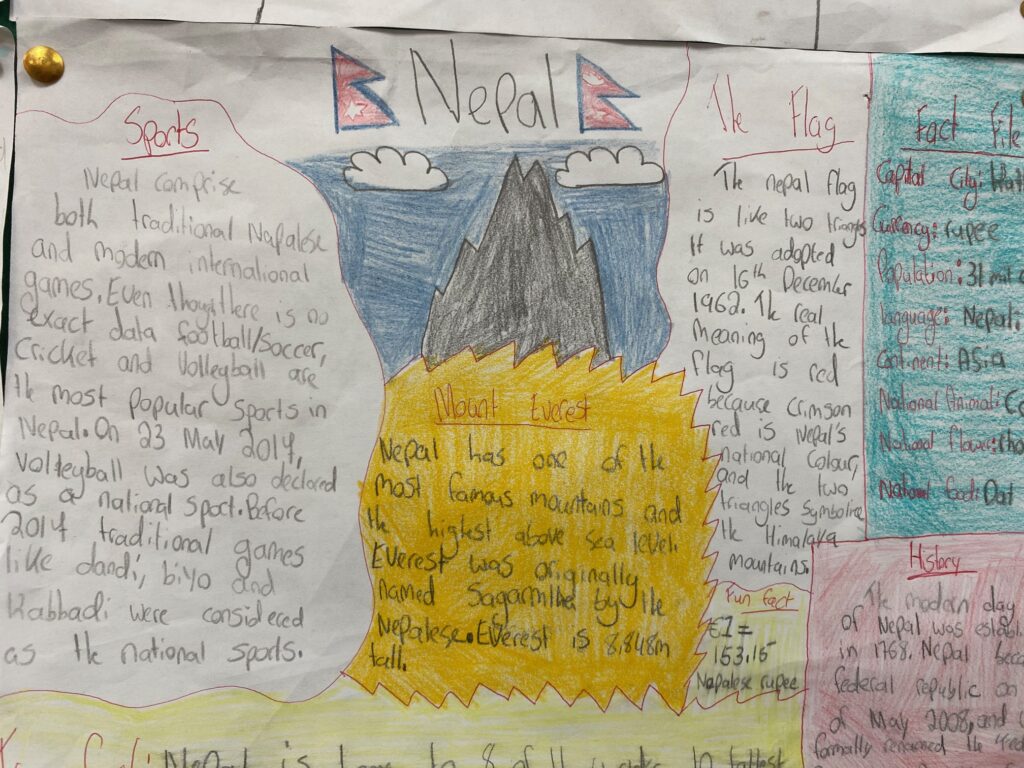 Nepal
Sports
Nepal comprise
both traditional Napalese
and modern international
games. Even though there is no
exact data football/soccer,
cricket and Volleyball are
the most popular sports in
Nepal. On 23 May 2017,
Volleyball was also declared
as a national sport. Before
2017 traditional games
like dandi, biyo and
Kabbadi were considered
as the national sports.
Mount Everest
Nepal has one of the
most famous mountains and
the highest above sea level.
Everest was originally
named by the
Nepalese. Everest is 8,848m
tall.
The Flag
The nepal flag
is like two triangles
It was adopted
on 16th December
1962. The real
meaning of the
flag is red
because crimson
red is Nepal's
national colour,
and the two
triangles symbolise
the Himalaya
mountains.
Fun fact
€1 =
153.15
Napalese rupee
Fact File
Capital City:
Currency: rupee
Population: 31 mil
language: Nepali
Continent: Asia
National Animal:
National flower:
National food: Dat
History
The modern day
of Nepal was
in 1768. Nepal
federal republic on
of May 2008, and
formally renamed the
Nepal is to 8 of the